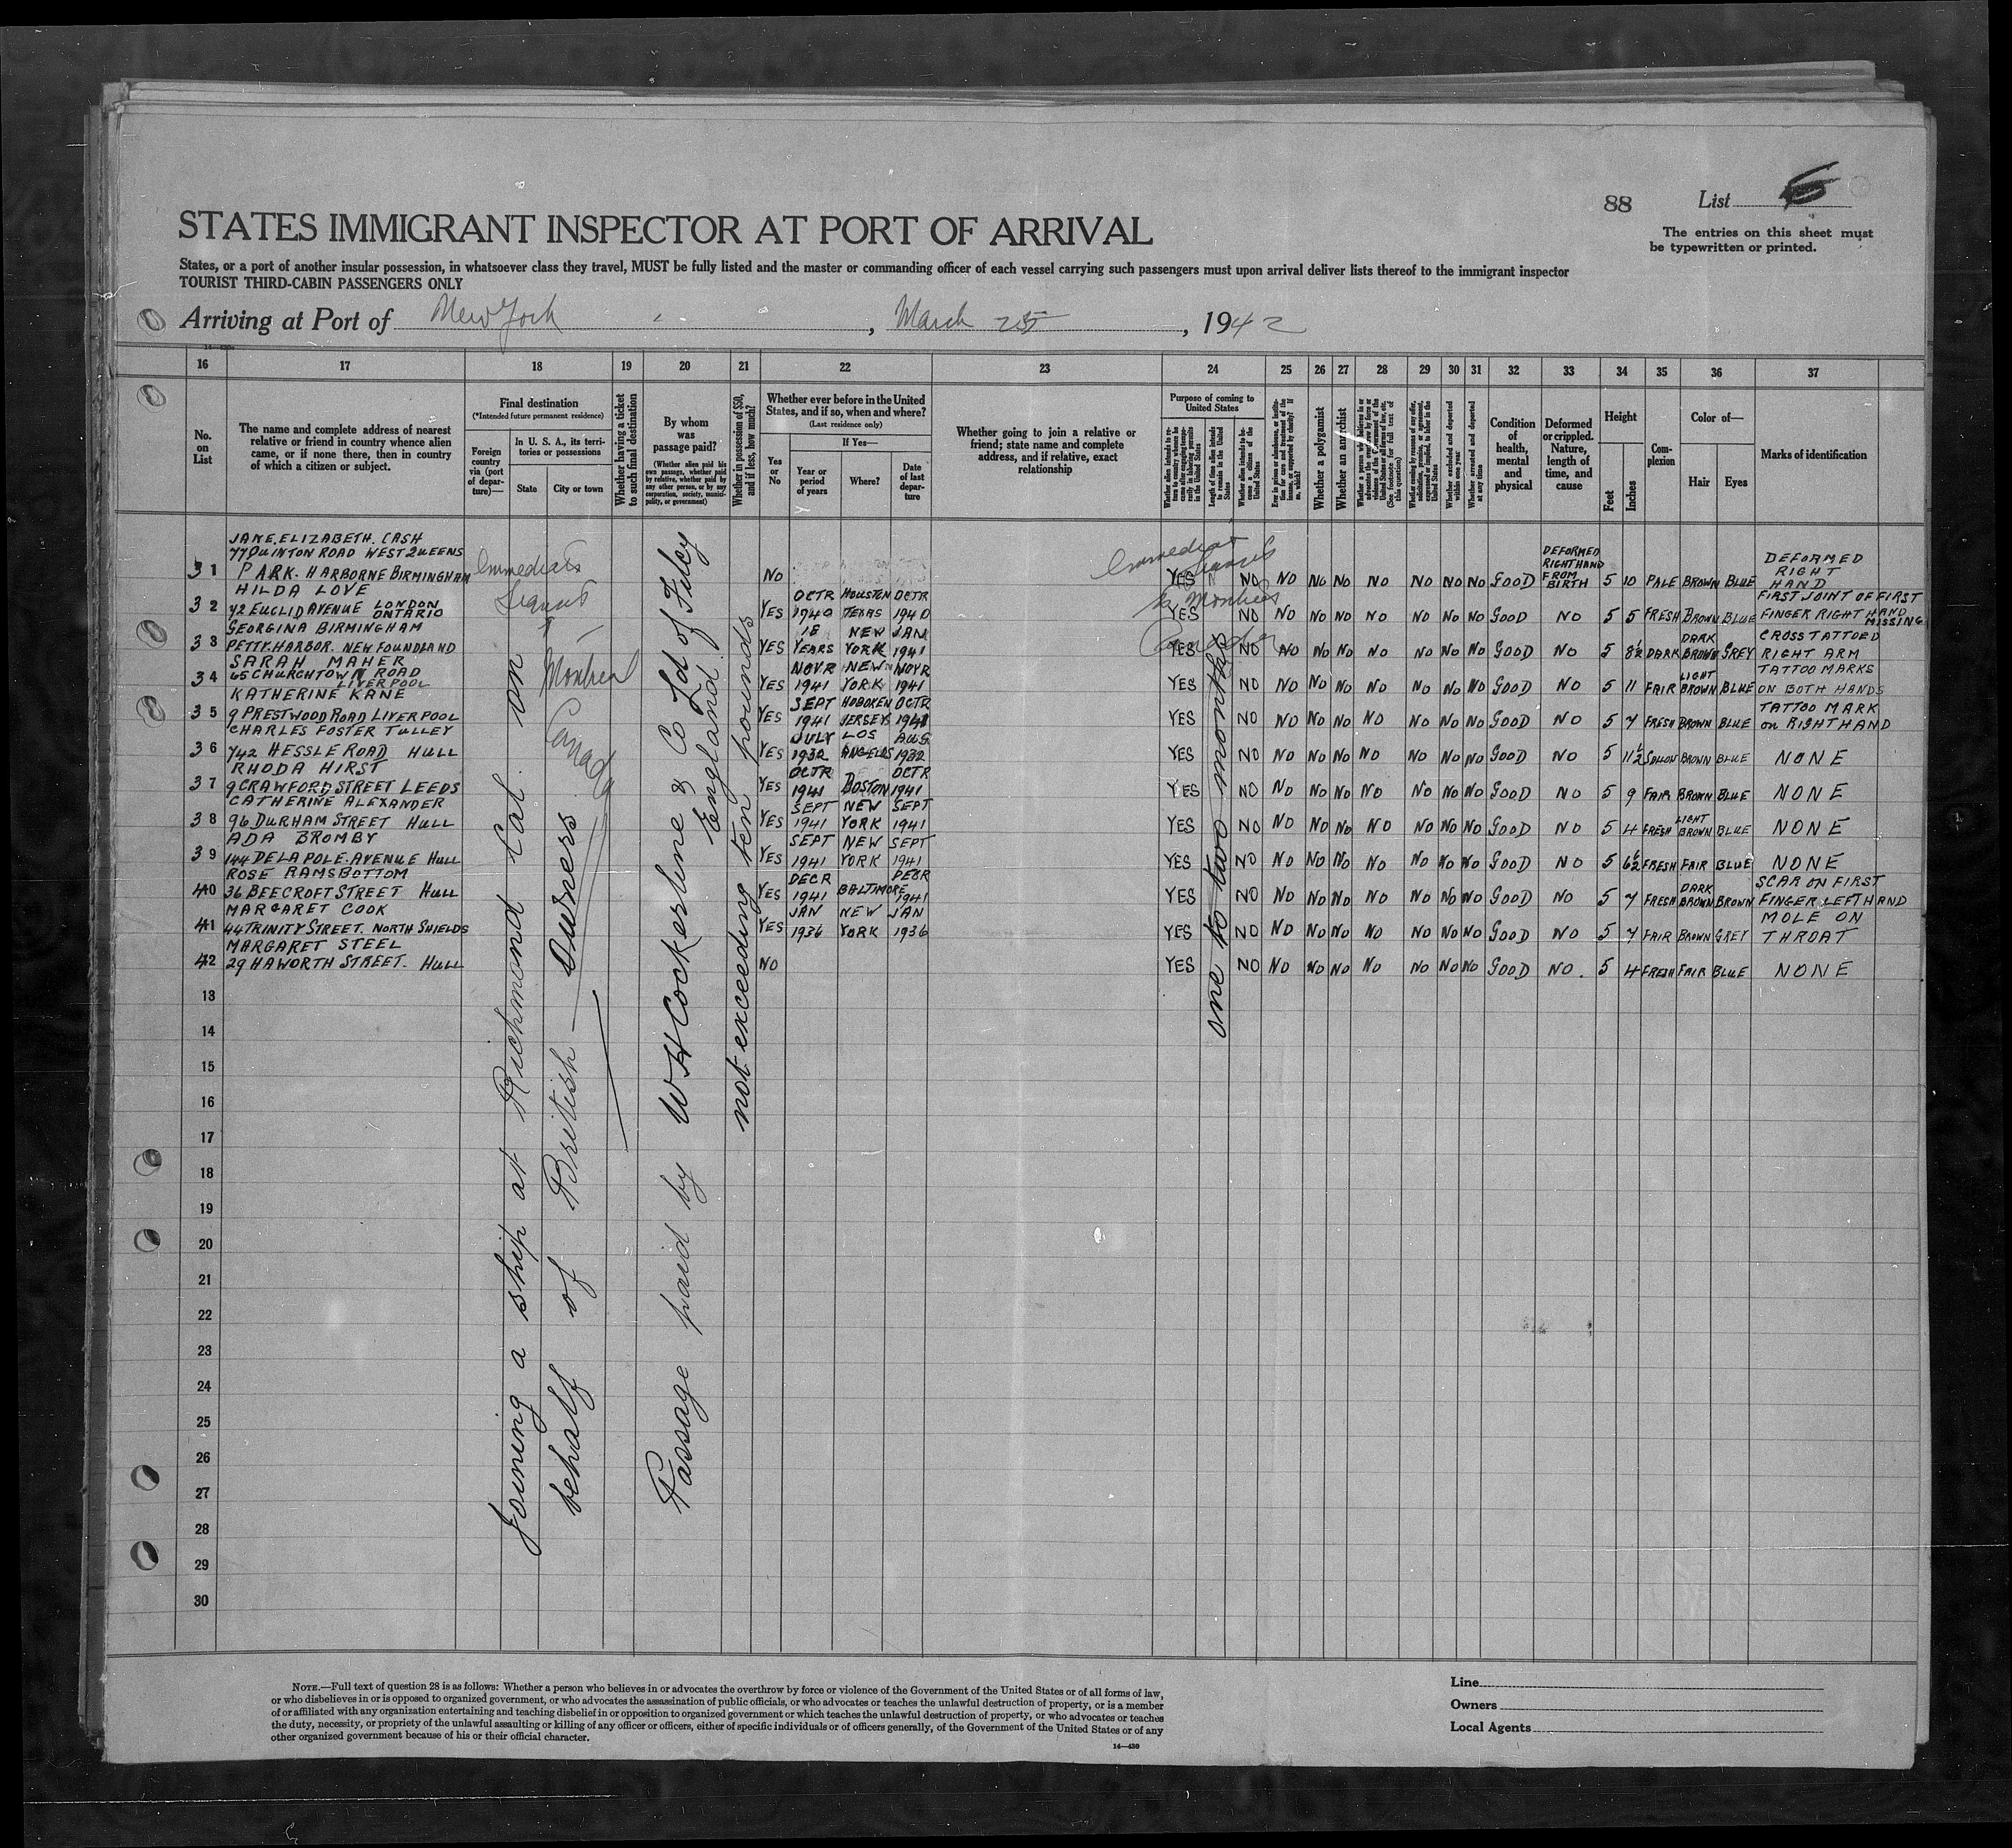 88
List 6
The entries on this sheet must
be typewritten or printed.
STATES IMMIGRANT INSPECTOR AT PORT OF ARRIVAL
States, or a port of another insular possession, in whatsoever class they travel, MUST be fully listed and the master or commanding officer of each vessel carrying such passengers must upon arrival deliver lists thereof to the immigrant inspector
TOURIST THIRD-CABIN PASSENGERS ONLY
Arriving at Port of New York, March 25, 1942
16 17 18 19 20 21 22 23 24 25 26 27 28 29 30 31 32 33 34 35 36 37
No. on List
The name and complete address of nearest
relative or friend in country whence alien
came, or if none there, then in country
of which a citizen or subject.
Final destination
(*Intended future permanent residence)
Foreign country via (port of departure)—
In U. S. A., its territories or possessions
State
City or town
Whether having a ticket to such final destination
By whom was passage paid?
(Whether alien paid his own passage, whether paid by relative, whether paid by any other person, or by any corporation, society, municipality, or government)
Whether in possession of $50, and if less, how much?
Whether ever before in the United States, and if so, when and where?
(Last residence only)
Yes or No
If Yes—
Year or period of years
Where?
Date of last departure
Whether going to join a relative or
friend; state name and complete
address, and if relative, exact
relationship
Purpose of coming to United States
Length of time alien intends to remain in the United States
Whether alien intends to become a citizen of the United States
Whether a polygamist
Whether an anarchist
Whether excluded and deported within one year
Whether arrested and deported at any time
Condition of health, mental and physical
Deformed or crippled. Nature, length of time, and cause
Height
Feet
Inches
Complexion
Color of—
Hair
Eyes
Marks of identification
JANE. ELIZABETH. CASH
77 QUINTON ROAD WEST QUEENS
31 PARK. HARBORNE BIRMINGHAM NO YES NO NO NO NO NO NO NO NO GOOD DEFORMED RIGHT HAND FROM BIRTH 5 10 PALE BROWN BLUE DEFORMED RIGHT HAND
HILDA LOVE
32 42 EUCLID AVENUE LONDON ONTARIO YES OCTR 1940 HOUSTON TEXAS OCTR 1940 YES NO NO NO NO NO NO NO NO GOOD NO 5 5 FRESH BROWN BLUE FIRST JOINT OF FIRST FINGER RIGHT HAND MISSING
GEORGINA BIRMINGHAM
33 PETTY. HARBOR. NEW FOUNDLAND YES 18 YEARS NEW YORK JAN 1941 YES NO NO NO NO NO NO NO NO GOOD NO 5 8½ DARK DARK BROWN GREY CROSS TATTOED RIGHT ARM
SARAH MAHER
34 65 CHURCHTOWN ROAD LIVERPOOL YES NOVR 1941 NEW YORK NOVR 1941 YES NO NO NO NO NO NO NO NO GOOD NO 5 11 FAIR LIGHT BROWN BLUE TATTOO MARKS ON BOTH HANDS
KATHERINE KANE
35 9 PRESTWOOD ROAD LIVERPOOL YES SEPT 1941 HOBOKEN JERSEY OCTR 1941 YES NO NO NO NO NO NO NO NO GOOD NO 5 7 FRESH BROWN BLUE TATTOO MARK on RIGHT HAND
CHARLES FOSTER TULLEY
36 742 HESSLE ROAD HULL YES JULY 1932 LOS ANGELES AUG 1932 YES NO NO NO NO NO NO NO NO GOOD NO 5 11½ SALLOW BROWN BLUE NONE
RHODA HIRST
37 9 CRAWFORD STREET LEEDS YES OCTR 1941 BOSTON OCTR 1941 YES NO NO NO NO NO NO NO NO GOOD NO 5 9 FAIR BROWN BLUE NONE
CATHERINE ALEXANDER
38 96 DURHAM STREET HULL YES SEPT 1941 NEW YORK SEPT 1941 YES NO NO NO NO NO NO NO NO GOOD NO 5 4 FRESH LIGHT BROWN BLUE NONE
ADA BROMBY
39 144 DE LA POLE. AVENUE HULL YES SEPT 1941 NEW YORK SEPT 1941 YES NO NO NO NO NO NO NO NO GOOD NO 5 6½ FRESH FAIR BLUE NONE
ROSE RAMSBOTTOM
40 36 BEECROFT STREET HULL YES DECR 1941 BALTIMORE DECR 1941 YES NO NO NO NO NO NO NO NO GOOD NO 5 7 FRESH DARK BROWN BROWN SCAR ON FIRST FINGER LEFT HAND
MARGARET COOK
41 44 TRINITY STREET. NORTH SHIELDS YES JAN 1936 NEW YORK JAN 1936 YES NO NO NO NO NO NO NO NO GOOD NO 5 7 FAIR BROWN GREY MOLE ON THROAT
MARGARET STEEL
42 29 HAWORTH STREET. HULL NO YES NO NO NO NO NO NO NO NO GOOD NO. 5 4 FRESH FAIR BLUE NONE
Immediate
Transit
Montreal
Canada
Immediate
Transit
to Montreal
Joining a ship at Richmond Cal. on
behalf of British Owners
Passage paid by W H Cockerline & Co Ltd of Filey
England
not exceeding ten pounds
one to two months
13
14
15
16
17
18
19
20
21
22
23
24
25
26
27
28
29
30
NOTE.—Full text of question 28 is as follows: Whether a person who believes in or advocates the overthrow by force or violence of the Government of the United States or of all forms of law,
or who disbelieves in or is opposed to organized government, or who advocates the assassination of public officials, or who advocates or teaches the unlawful destruction of property, or is a member
of or affiliated with any organization entertaining and teaching disbelief in or opposition to organized government or which teaches the unlawful destruction of property, or who advocates or teaches
the duty, necessity, or propriety of the unlawful assaulting or killing of any officer or officers, either of specific individuals or of officers generally, of the Government of the United States or of any
other organized government because of his or their official character.
14—430
Line
Owners
Local Agents